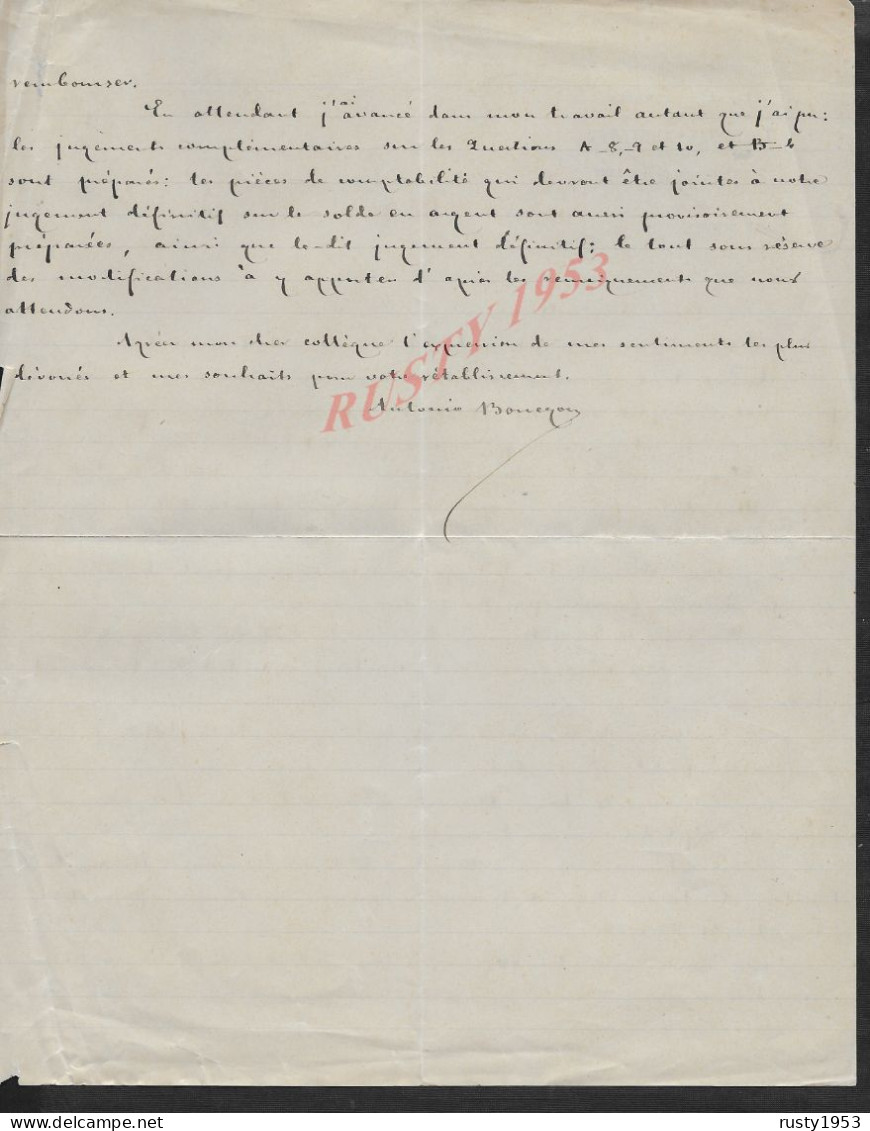 rembourser.
En attendant j'ai avancé dans mon travail autant que j'ai pu :
les jugements complémentaires sur les Questions A-8,-9 et 10, et B-6
sont préparés : les pièces de comptabilité qui devront être jointes à notre
jugement définitif sur le solde en argent sont aussi provisoirement
préparées, ainsi que le-dit jugement définitif ; le tout sous réserve
des modifications à y apporter d'après les renseignements que nous
attendons.
Agréez mon cher collègue l'expression de mes sentiments les plus
dévoués et mes souhaits pour votre rétablissement.
Antonio
RUSTY 1953
Delcampe.net
rusty1953